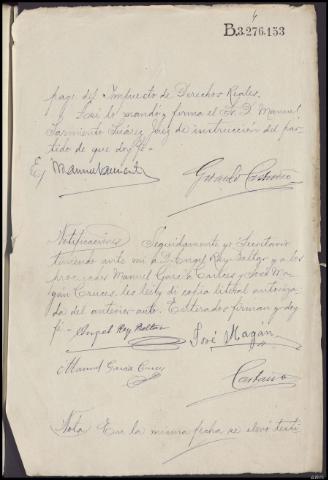 4
B.3.276.153
pago del Impuesto de Derechos Reales.
Así lo mandó y firma el Sr. D. Manuel
Sarmiento Suárez Juez de instrucción del par-
tido de que doy fe-
E/ Manuel Sarmiento
Notificaciones Seguidamente yo Secretario
teniendo ante mi a D. Angel Rey Baltar y a los
procesados Manuel García Cruces y José Ma-
gán Cruces, les leí y dí copia literal autoriza-
da del anterior auto. Enterados firman y doy
fe- Angel Rey Baltar
José Magán
Manuel García Cruces
Nota En la misma fecha se elevó testi